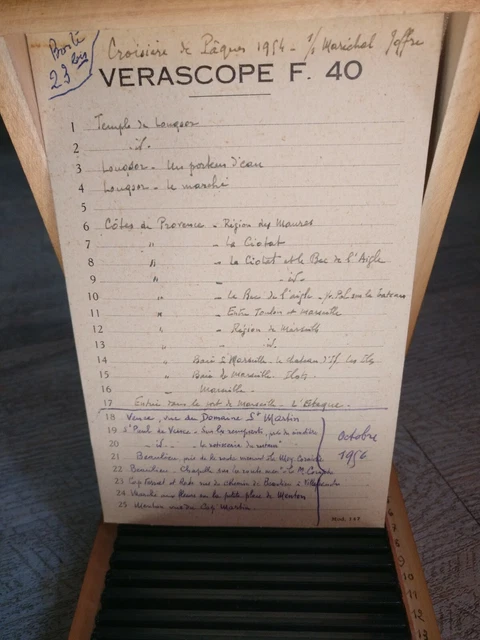 Boîte 23 bis
Croisière de Pâques 1954 - s/s Maréchal Joffre
VERASCOPE F. 40
1 Temple de Louqsor
2 -id-
3 Louqsor - Un porteur d'eau
4 Louqsor - le marché
5
6 Côtes de Provence - Région des Maures
7 " - La Ciotat
8 " - La Ciotat et le Bec de l'Aigle
9 " - -id-
10 " - Le Bec de l'aigle -
11 " - Entre Toulon et Marseille
12 " - Région de Marseille
13 " - id-
14 " - Baie de Marseille - le chateau d'If
15 " - Baie de Marseille
16 " - Marseille
17 Entrée dans le port de Marseille - L'Estaque -
18 Vence, vue du Domaine St Martin
19 St Paul de Vence - Sur les remparts,
20 " - id -
21 Beaulieu
22 Beaulieu - Chapelle sur la route
23 Cap Ferrat et Rade vue du chemin de Beaulieu à Villefranche
24 Marché aux fleurs sur la petite place de Menton
25 Menton vue du Cap Martin
Octobre
1956
6
7
9
10
11
12